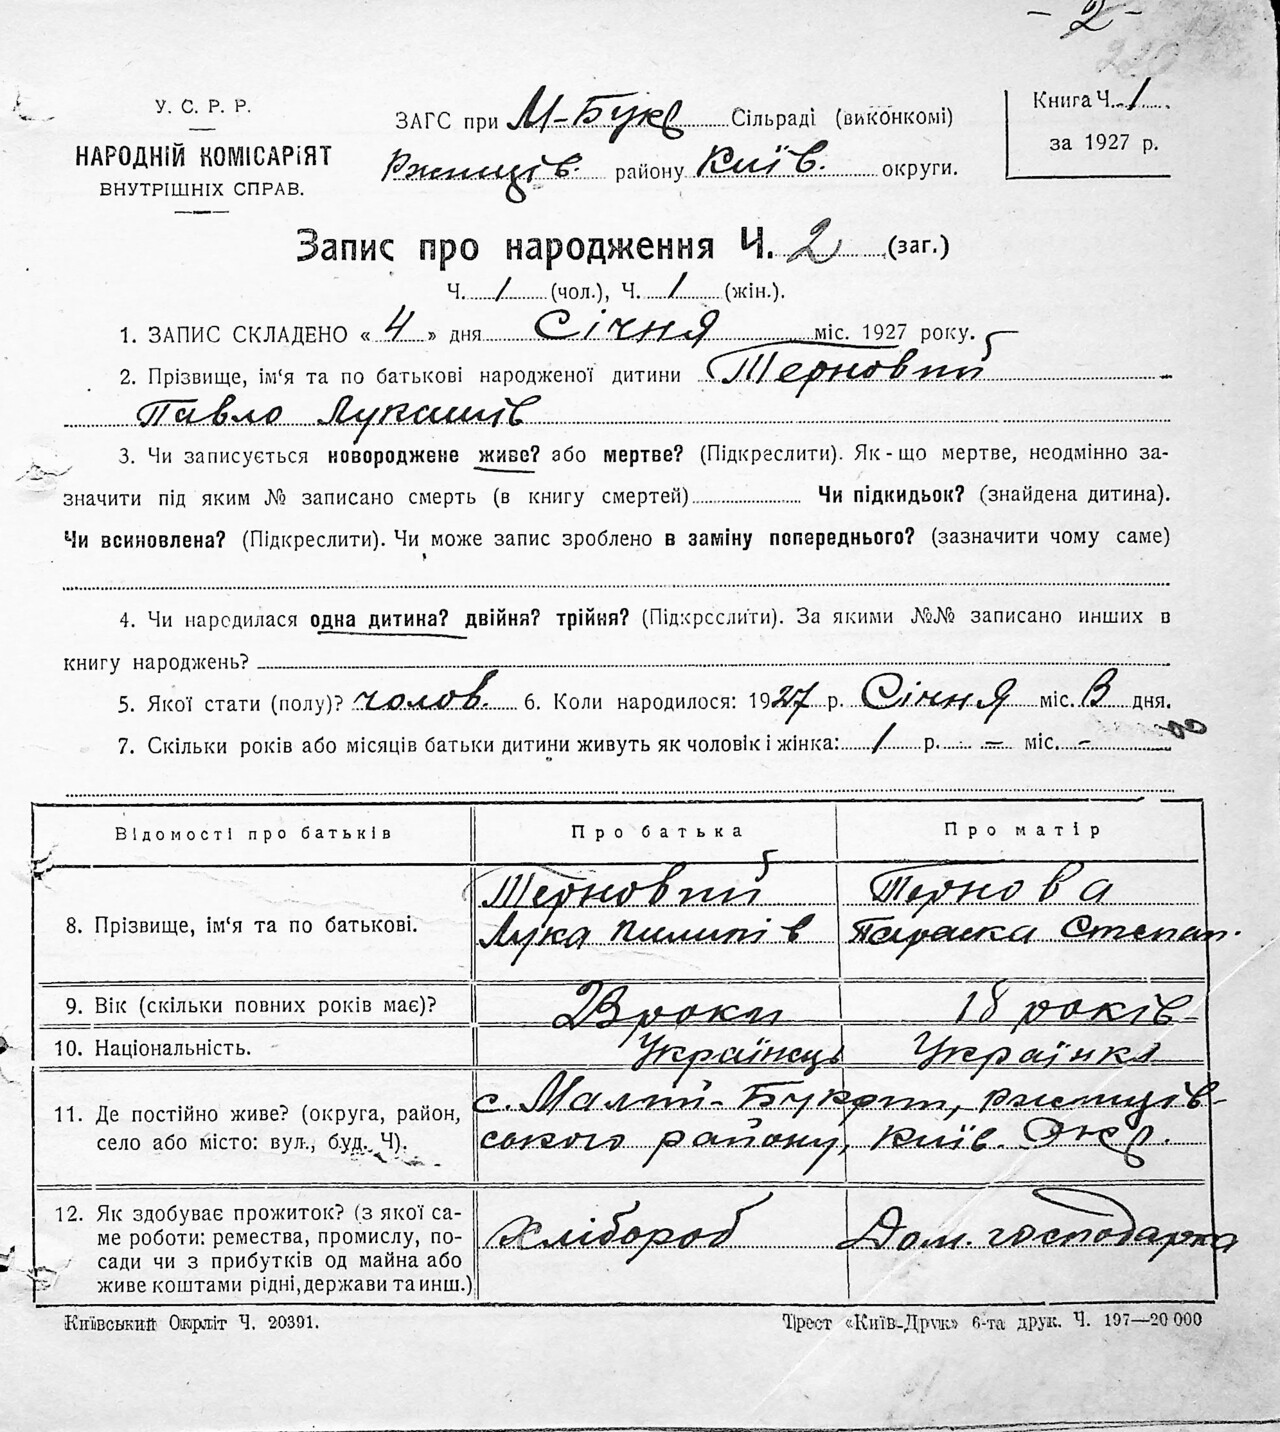 - 2 -
220
У. С. Р. Р.
НАРОДНІЙ КОМІСАРІЯТ
ВНУТРІШНІХ СПРАВ.
ЗАГС при М-Бук Сільраді (виконкомі)
Ржищів. району Київ. округи.
Книга Ч. 1
за 1927 р.
Запис про народження Ч. 2 (заг.)
Ч. 1 (чол.), Ч. 1 (жін.).
1. ЗАПИС СКЛАДЕНО « 4 » дня Січня міс. 1927 року.
2. Прізвище, ім‘я та по батькові народженої дитини Терновий
Павло Лукашів
3. Чи записується новороджене живе? або мертве? (Підкреслити). Як-що мертве, неодмінно за-
значити під яким № записано смерть (в книгу смертей) Чи підкидьок? (знайдена дитина).
Чи всиновлена? (Підкреслити). Чи може запис зроблено в заміну попереднього? (зазначити чому саме)
4. Чи народилася одна дитина? двійня? трійня? (Підкреслити). За якими №№ записано инших в
книгу народжень?
5. Якої стати (полу)? чолов. 6. Коли народилося: 1927 р. Січня міс. 3 дня.
7. Скільки років або місяців батьки дитини живуть як чоловік і жінка: 1 р. - міс. -
Відомості про батьків Про батька Про матір
8. Прізвище, ім‘я та по батькові. Терновий Лука Пилипів Тернова Параска Степан.
9. Вік (скільки повних років має)? 23 роки 18 років
10. Національність. Українець Українка
11. Де постійно живе? (округа, район, с. Малий-Букрин, Ржищів-
село або місто: вул., буд. Ч). ського району, Київ. Окр.
12. Як здобуває прожиток? (з якої са-
ме роботи: ремества, промислу, по- Хлібороб Дом. господарка
сади чи з прибутків од майна або
живе коштами рідні, держави та инш.)
Київський Окрліт Ч. 20391.
Трест «Київ-Друк» 6-та друк. Ч. 197—20 000